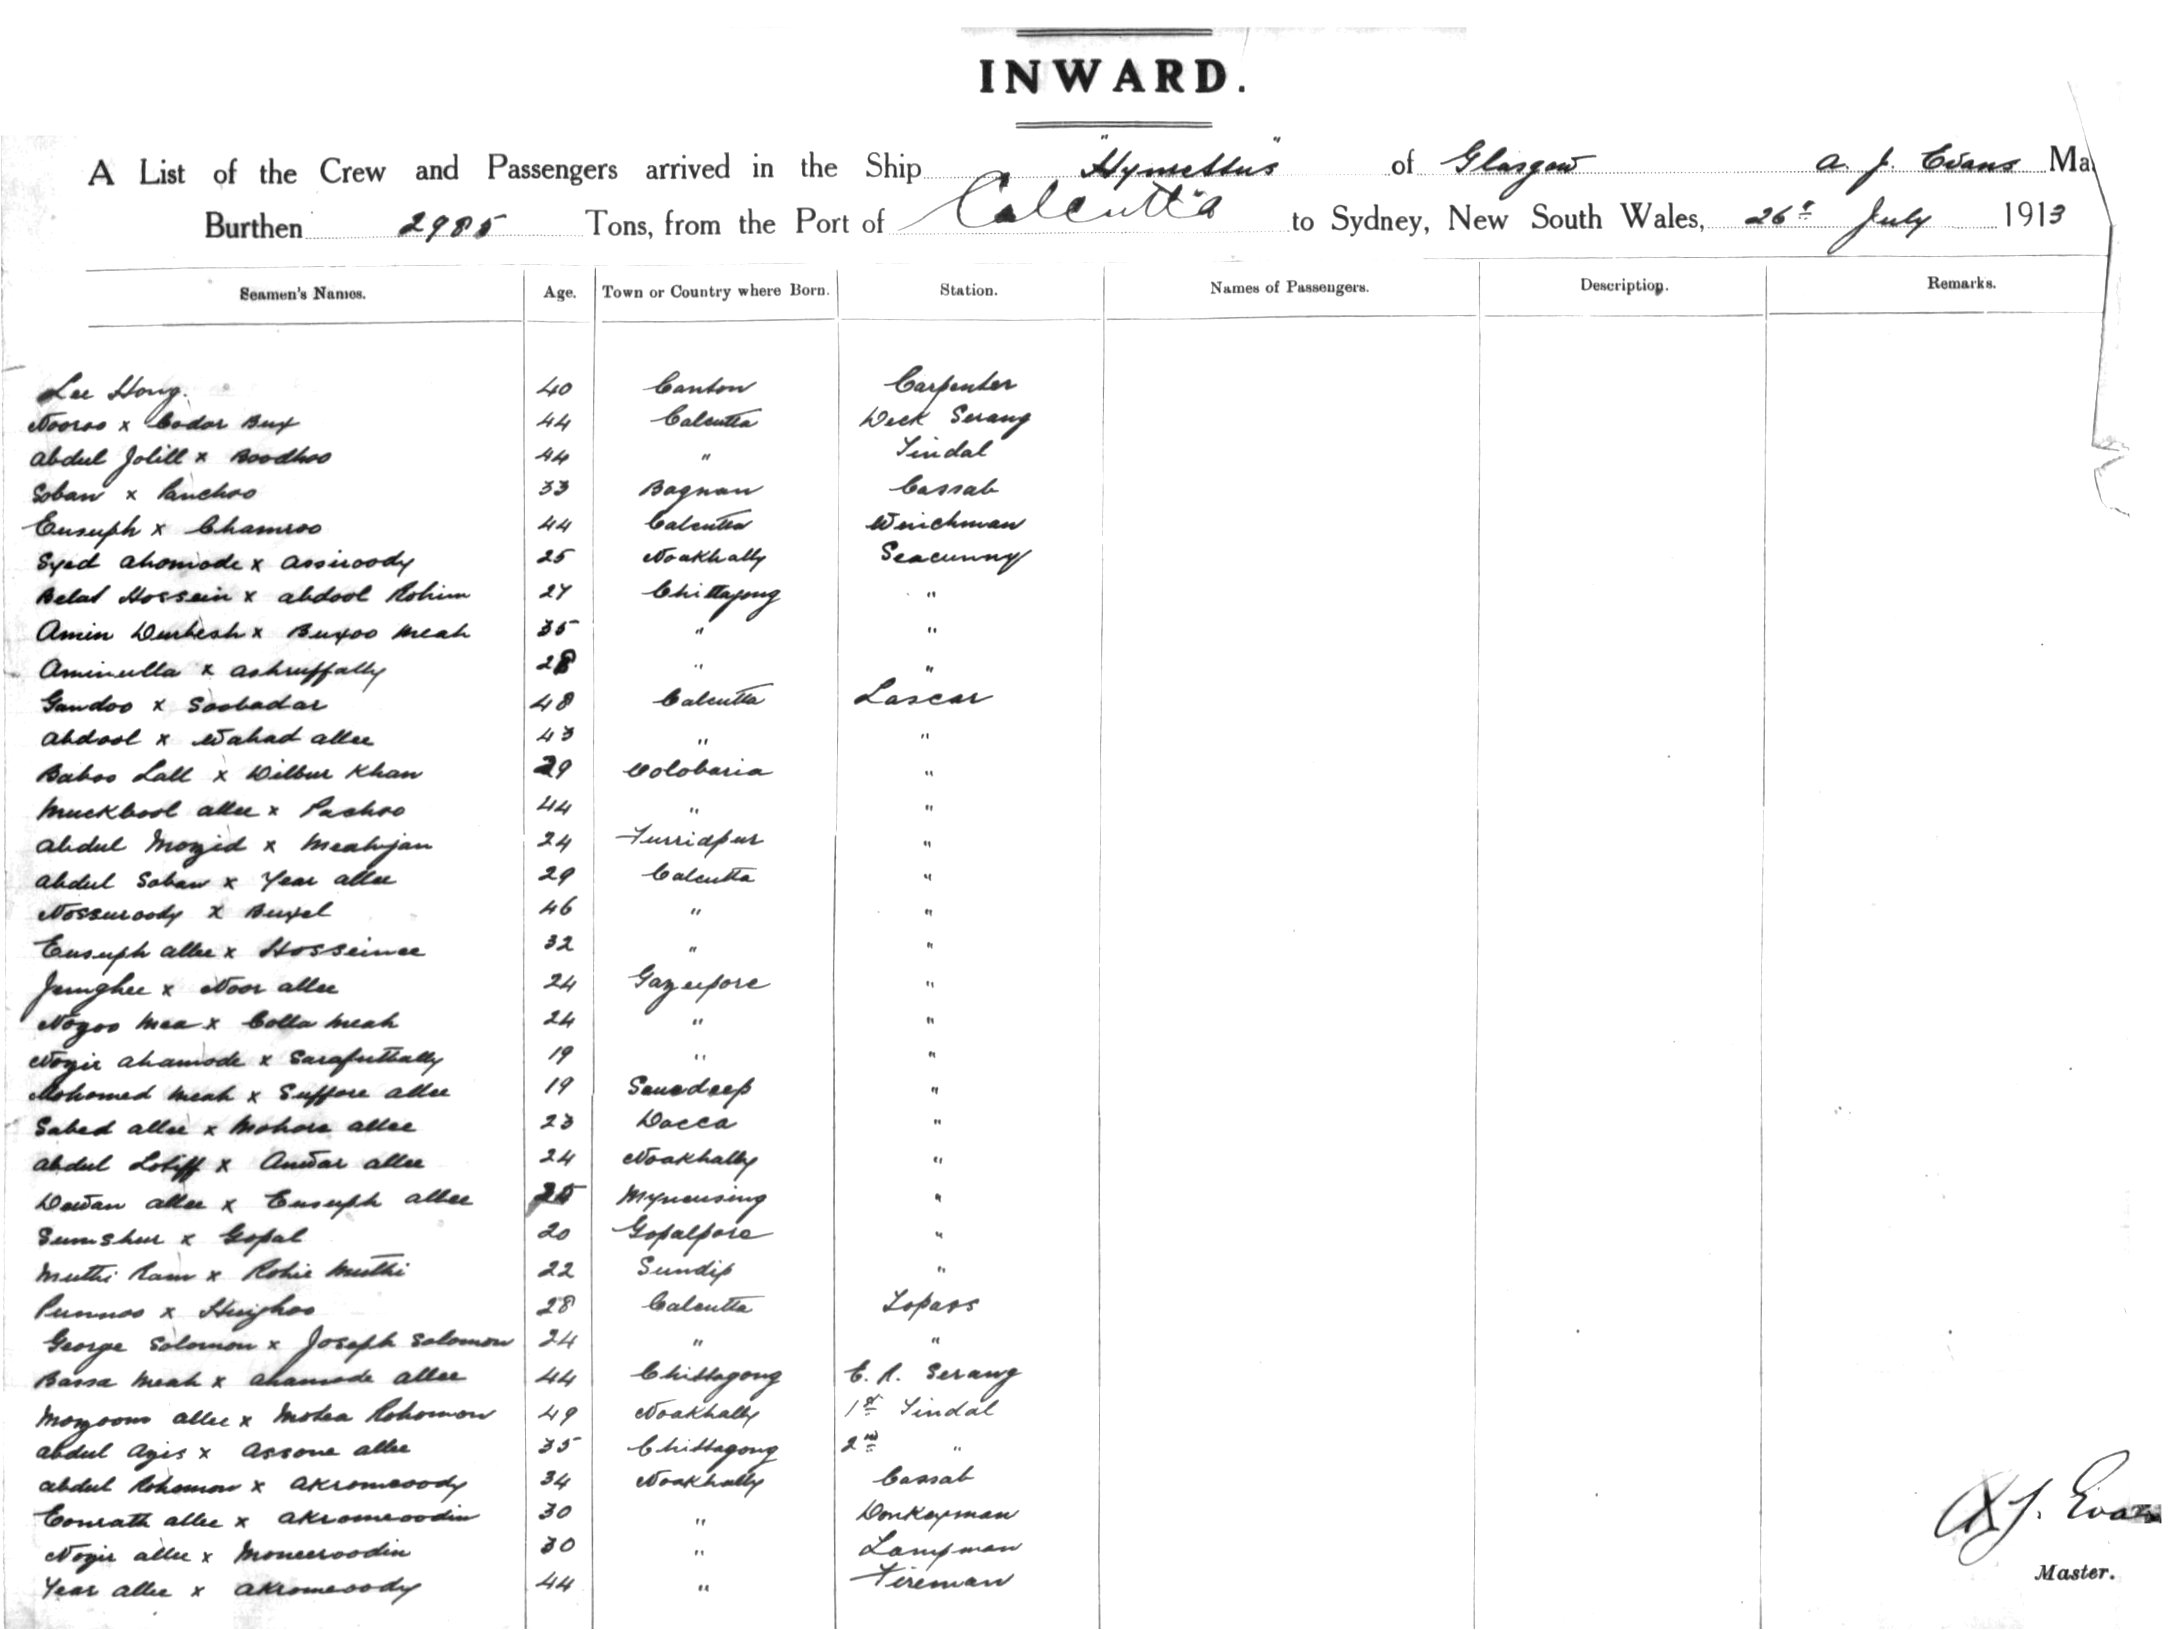 INWARD.
A List of the Crew and Passengers arrived in the Ship "Hymettus" of Glasgow A. J. Evans Ma
Burthen 2985 Tons, from the Port of Calcutta to Sydney, New South Wales, 26th July 1913
Seamen's Names. Age. Town or Country where Born. Station. Names of Passengers. Description. Remarks.
Lee Hong. 40 Canton Carpenter
Nooroo x Codor Bux 44 Calcutta Deck Serang
Abdul Jolill x Boodhoo 44 " Tindal
Soban x Panchoo 33 Bagnan Cassab
Eusuph x Chamroo 44 Calcutta Winchman
Syed Ahomode x Assiroody 25 Noakhally Seacunny
Belat Hossein x Abdool Rohim 27 Chittagong "
Amin Durbesh x Buxoo Meah 35 " "
Aminulla x Ashruffally 28 " "
Gandoo x Soobadar 48 Calcutta Lascar
Abdool x Wahad Allee 43 " "
Baboo Lall x Dilbur Khan 29 Oolobaria "
Muckbool Allee x Pachoo 44 " "
Abdul Mozid x Meahjan 24 Furridpur "
Abdul Soban x Year Allee 29 Calcutta "
Nossuroody x Buxel 46 " "
Eusuph Allee x Hosseinee 32 " "
Junghee x Noor Allee 24 Gazeepore "
Nozoo Mea x Colla Meah 24 " "
Nozir Ahamode x Sarafuthally 19 " "
Mohomed Meah x Suffore Allee 19 Sundeep "
Sabed Allee x Mohore Allee 23 Dacca "
Abdul Lotiff x Anwar Allee 24 Noakhally "
Dewan Allee x Eusuph Allee 25 Mymensing "
Sumshur x Gopal 20 Gopalpore "
Muthi Ram x Rohie Muthi 22 Sundip "
Punnoo x 28 Calcutta Topass
George Solomon x Joseph Solomon 24 " "
Bassa Meah x Ahamode Allee 44 Chittagong E. R. Serang
Mozoom Allee x Motea Rohomon 49 Noakhally 1st Tindal
Abdul Azis x Assone Allee 35 Chittagong 2nd "
Abdul Rohomon x Akromoody 34 Noakhally Cassab
Allee x Akromoodin 30 " Donkeyman
Nozir Allee x Moneeroodin 30 " Lampman
Year Allee x Akromoody 44 " Fireman
A. J. Evans
Master.